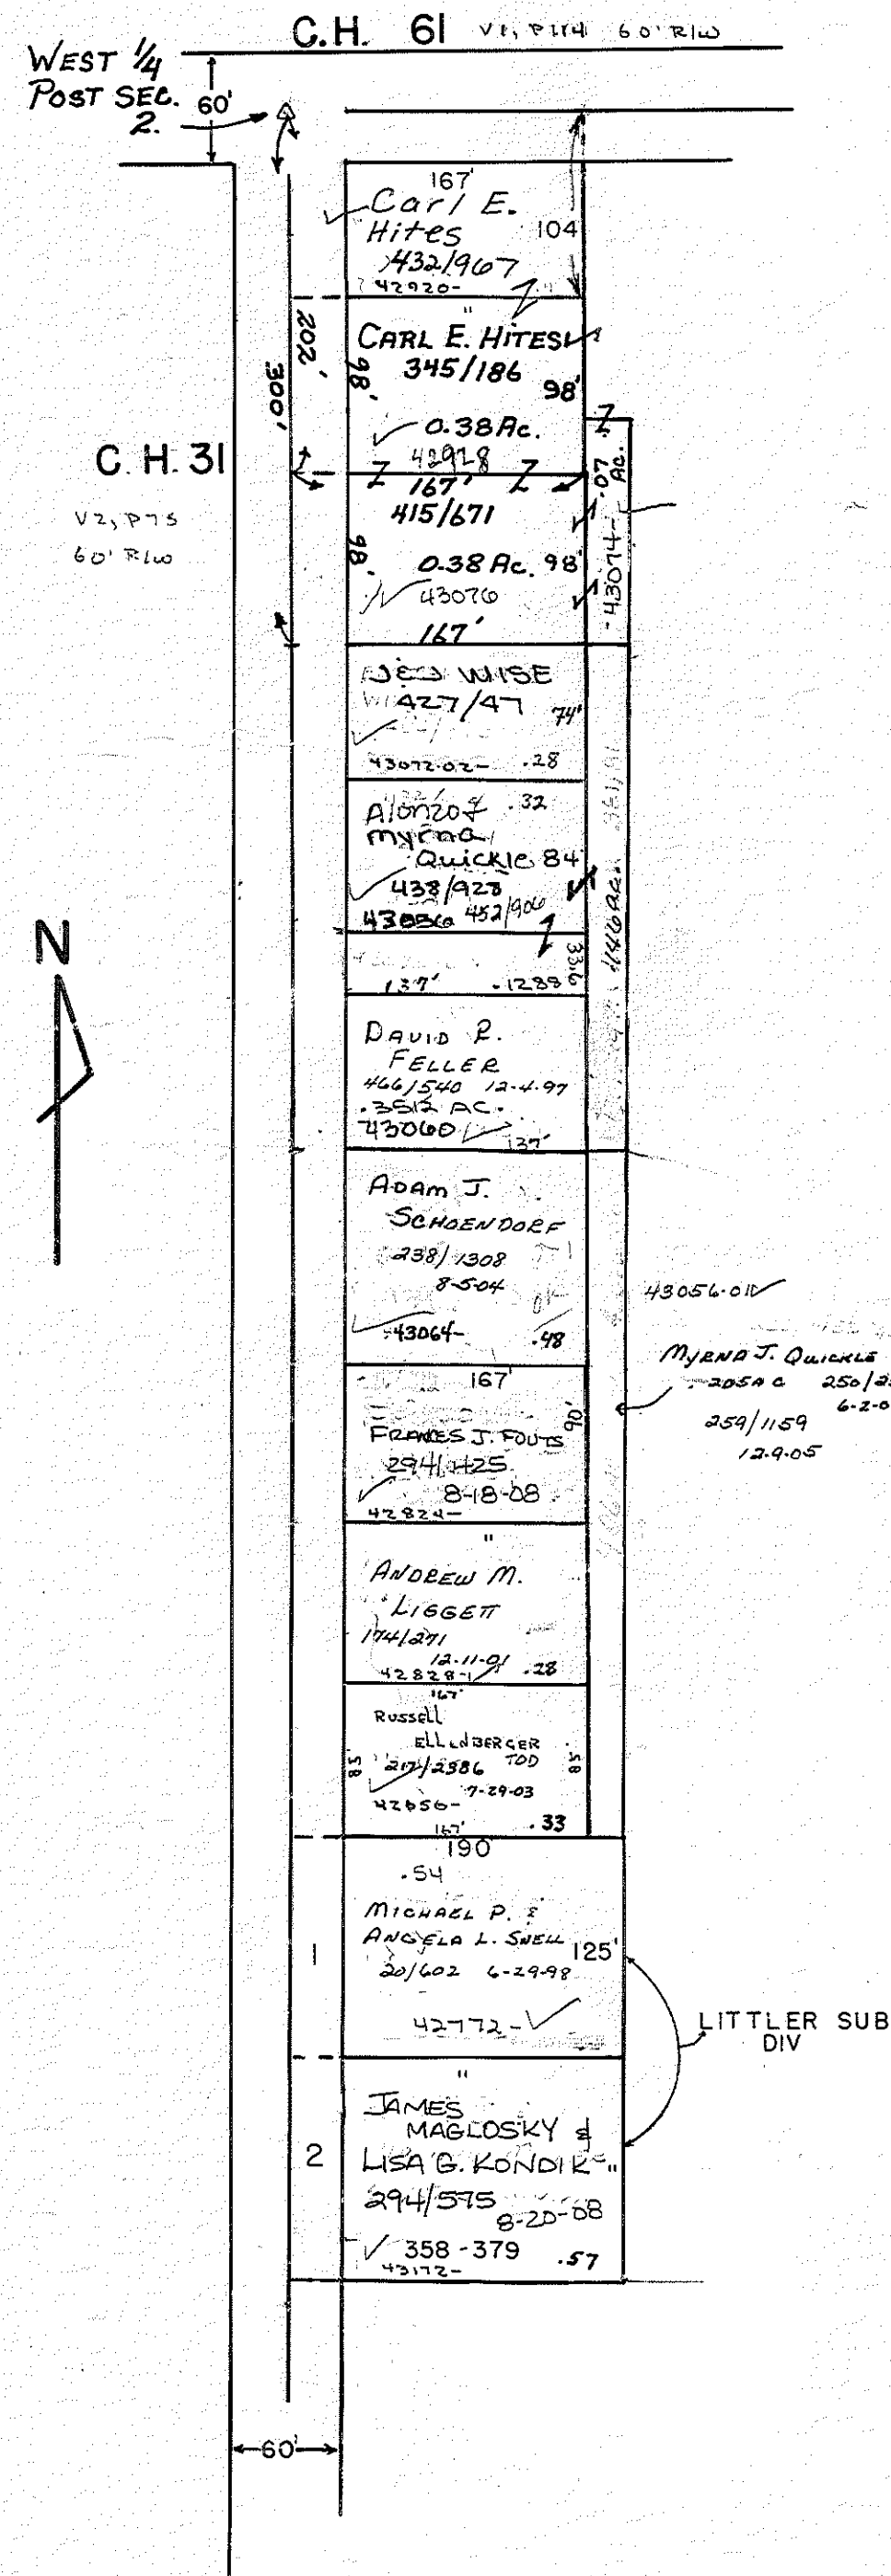 C.H. 61 V1, P114 60' R/W
WEST 1/4
POST SEC.
2.
60'
167'
Carl E.
Hites
104
432/967
42920-
"
CARL E. HITES
345/186
98'
98'
202'
300'
0.38 Ac.
42928
C. H. 31
V2, P75
60' R/W
167'
415/671
98'
0.38 Ac. 98'
43076
167'
.07 Ac.
-43074-
WISE
427/47
74'
43072.02- .28
Alonzo &
.32
Myrna
Quickle 84'
438/928
452/906
33.6
137' .1288
N
DAVID R.
FELLER
466/540 12-4-97
.3512 AC.
43060
137'
ADAM J.
SCHOENDORF
238/1308
8-5-04
43064-
.48
43056.01
MYRNA J. QUICKLE
.205 AC
259/1159
12-9-05
167'
90'
FRANCES J. FOUTS
294/1425
8-18-08
42824-
"
ANDREW M.
LIGGETT
174/271
12-11-01
42828-
.28
167'
RUSSELL
ELLENBERGER
TOD
217/2386
7-29-03
.58
.58
167'
.33
190
.54
MICHAEL P. &
ANGELA L. SNELL
125'
20/602 6-29-98
42772-
1
LITTLER SUB
DIV
"
JAMES
MAGLOSKY &
LISA G. KONDIK "
294/575
8-20-08
358-379
.57
43172-
2
60'